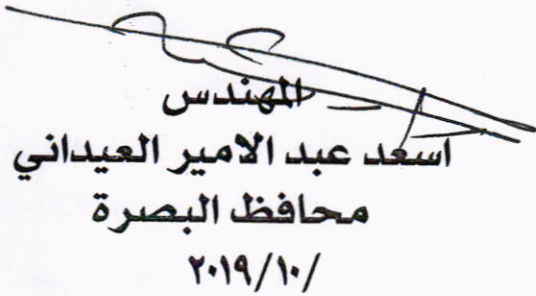 المهندس
اسعد عبد الامير العيداني
محافظ البصرة
/٢٠١٩/١٠